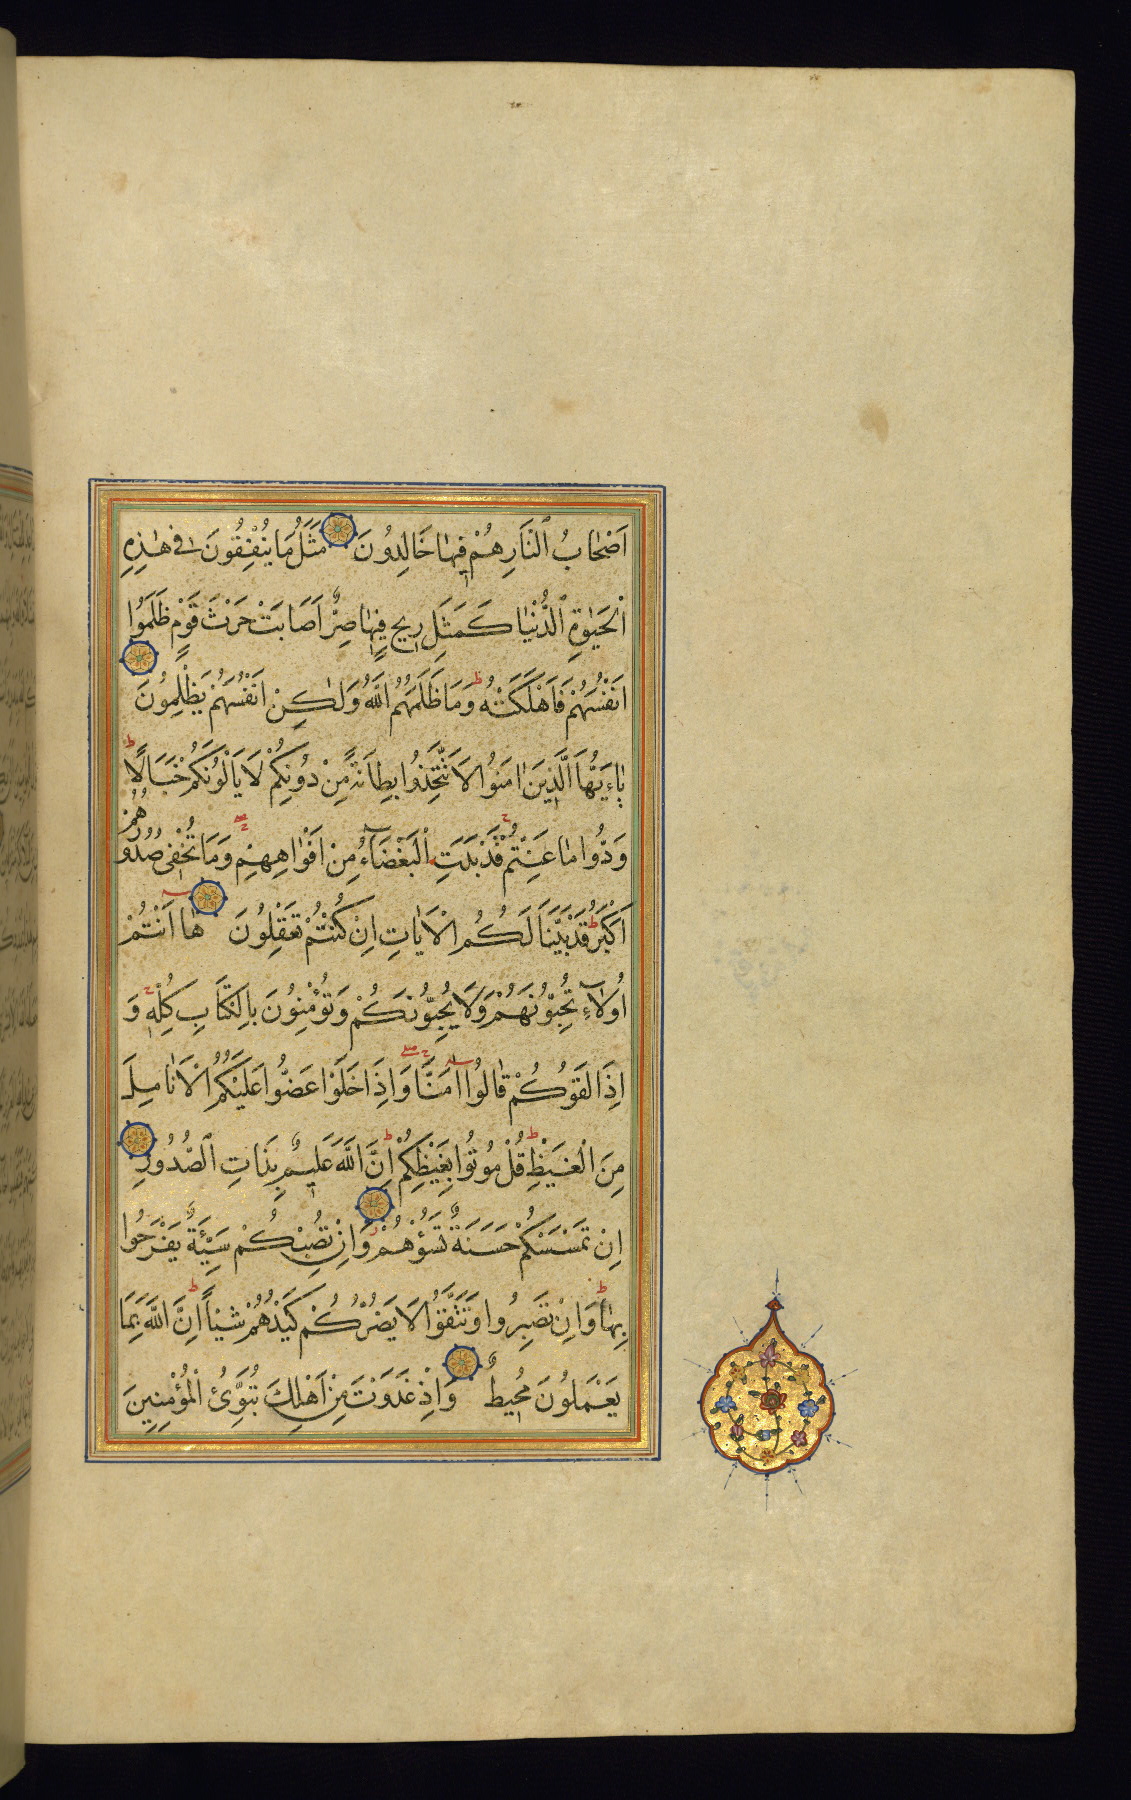 اَصْحَابُ ٱلنَّارِ هُمْ فِيهَا خَالِدُونَ مَثَلُ مَا يُنْفِقُونَ فِى هٰذِهِ
ٱلْحَيٰوةِ ٱلدُّنْيَا كَمَثَلِ رِيحٍ فِيهَا صِرٌّ اَصَابَتْ حَرْثَ قَوْمٍ ظَلَمُوا
اَنْفُسَهُمْ فَاَهْلَكَتْهُ وَمَا ظَلَمَهُمُ اللّٰهُ وَلٰكِنْ اَنْفُسَهُمْ يَظْلِمُونَ
يٰاءَيُّهَا الَّذِينَ اٰمَنُوا لَا تَتَّخِذُوا بِطَانَةً مِنْ دُونِكُمْ لَا يَاْلُونَكُمْ خَبَالًا
وَدُّوا مَا عَنِتُّمْ قَدْ بَدَتِ ٱلْبَغْضَاءُ مِنْ اَفْوَاهِهِمْ وَمَا تُخْفِى صُدُورُهُمْ
اَكْبَرُ قَدْ بَيَّنَّا لَكُمُ الْاٰيَاتِ اِنْ كُنْتُمْ تَعْقِلُونَ هَا اَنْتُمْ
اُولَاءِ تُحِبُّونَهُمْ وَلَا يُحِبُّونَكُمْ وَتُؤْمِنُونَ بِالْكِتَابِ كُلِّهِ وَ
اِذَا لَقُوكُمْ قَالُوا اٰمَنَّا وَاِذَا خَلَوْا عَضُّوا عَلَيْكُمُ الْاَنَامِلَ
مِنَ الْغَيْظِ قُلْ مُوتُوا بِغَيْظِكُمْ اِنَّ اللّٰهَ عَلِيمٌ بِذَاتِ ٱلصُّدُورِ
اِنْ تَمْسَسْكُمْ حَسَنَةٌ تَسُؤْهُمْ وَاِنْ تُصِبْكُمْ سَيِّئَةٌ يَفْرَحُوا
بِهَا وَاِنْ تَصْبِرُوا وَتَتَّقُوا لَا يَضُرُّكُمْ كَيْدُهُمْ شَيْئًا اِنَّ اللّٰهَ بِمَا
يَعْمَلُونَ مُحِيطٌ وَاِذْ غَدَوْتَ مِنْ اَهْلِكَ تُبَوِّئُ الْمُؤْمِنِينَ